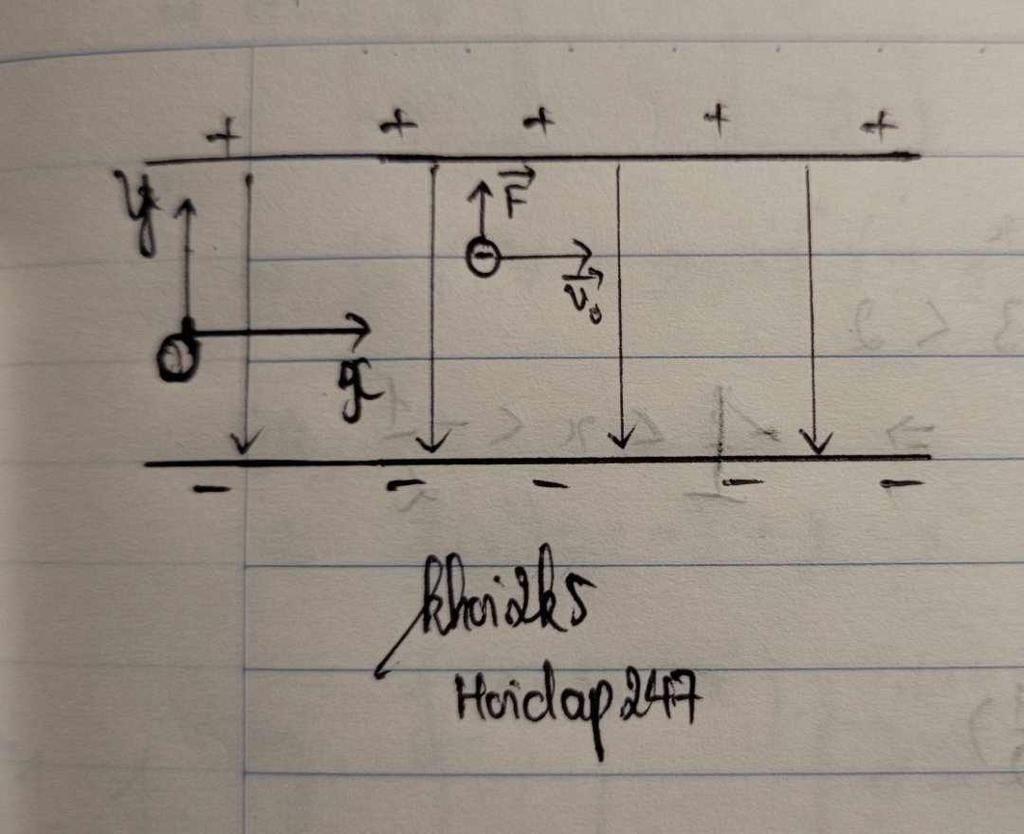 + + + + +
y
F
v₀
x
- - - - -
khoi2k5
Hoidap247